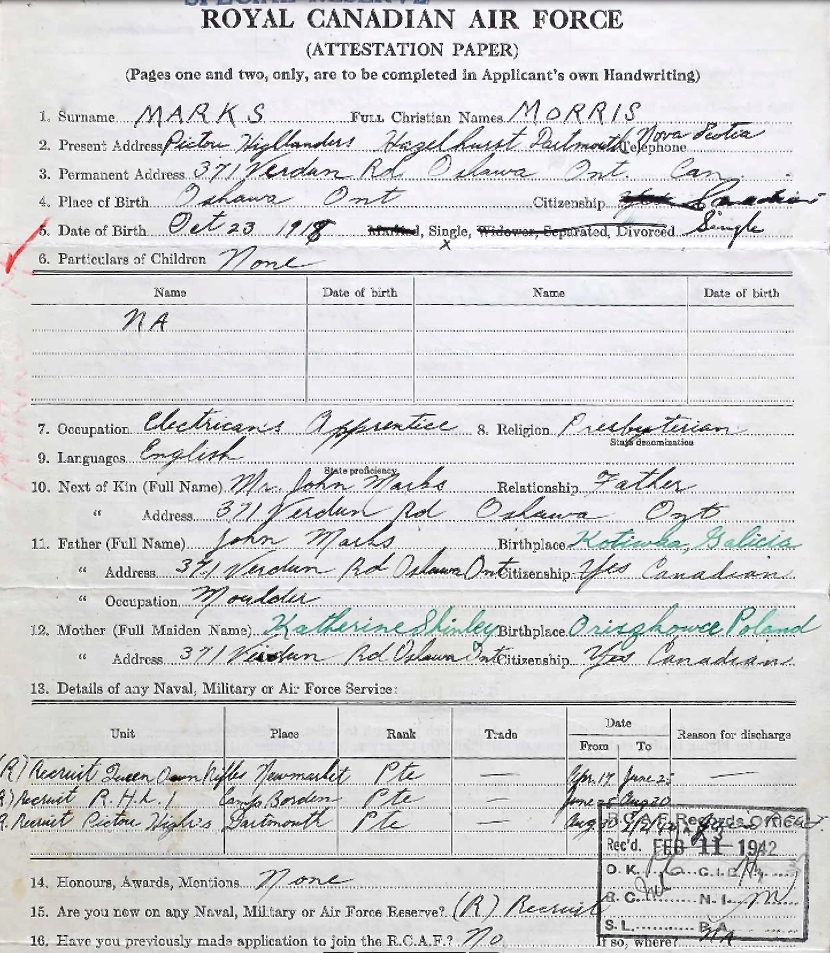 SPECIAL RESERVE
ROYAL CANADIAN AIR FORCE
(ATTESTATION PAPER)
(Pages one and two, only, are to be completed in Applicant's own Handwriting)
1. Surname MARKS Full Christian Names MORRIS
2. Present Address Pictou Highlanders Hazelhurst Dartmouth Nova Scotia Telephone
3. Permanent Address 371 Verdun Rd Oshawa Ont. Can.
4. Place of Birth Oshawa Ont Citizenship Canadian
5. Date of Birth Oct 23 1918 Married, Single, Widower, Separated, Divorced Single
x
6. Particulars of Children None
Name Date of birth Name Date of birth
NA
7. Occupation Electricans Apprentice 8. Religion Presbyterian
State denomination
9. Languages English
State proficiency
10. Next of Kin (Full Name) Mr. John Marks Relationship Father
" Address 371 Verdun Rd Oshawa Ont
11. Father (Full Name) John Marks Birthplace Galicia
" Address 371 Verdun Rd Oshawa Ont Citizenship Yes Canadian
" Occupation Moulder
12. Mother (Full Maiden Name) Katherine Birthplace Poland
" Address 371 Verdun Rd Oshawa Ont Citizenship Yes Canadian
13. Details of any Naval, Military or Air Force Service:
Unit Place Rank Trade Date Reason for discharge
From To
(R) Recruit Queen Own Rifles Newmarket Pte — Apr. 17 June 25 —
Recruit R.H.L.I Camp Borden Pte — June 25 Aug 20
R. Recruit Pictou High's Dartmouth Pte — Aug
R.C.A.F. Records Office
Rec'd. FEB 11 1942
O.K. C.I.
R.C. N.I.
S.L. B.A.
14. Honours, Awards, Mentions None
15. Are you now on any Naval, Military or Air Force Reserve? (R) Recruit
16. Have you previously made application to join the R.C.A.F.? No If so, where? NA